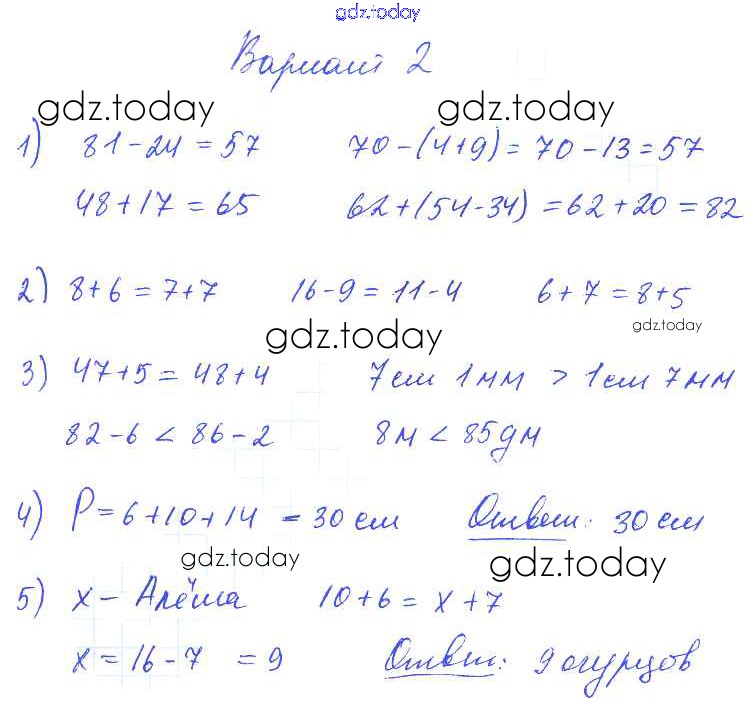 gdz.today
Вариант 2
gdz.today gdz.today
1) 81-24=57 70-(4+9)=70-13=57
48+17=65 62+(54-34)=62+20=82
2) 8+6=7+7 16-9=11-4 6+7=8+5
gdz.today gdz.today
3) 47+5=48+4 7см 1мм > 1см 7мм
82-6<86-2 8м<85дм
4) P=6+10+14=30см Ответ: 30см
gdz.today gdz.today
5) x-Алёша 10+6=x+7
x=16-7=9 Ответ: 9 огурцов